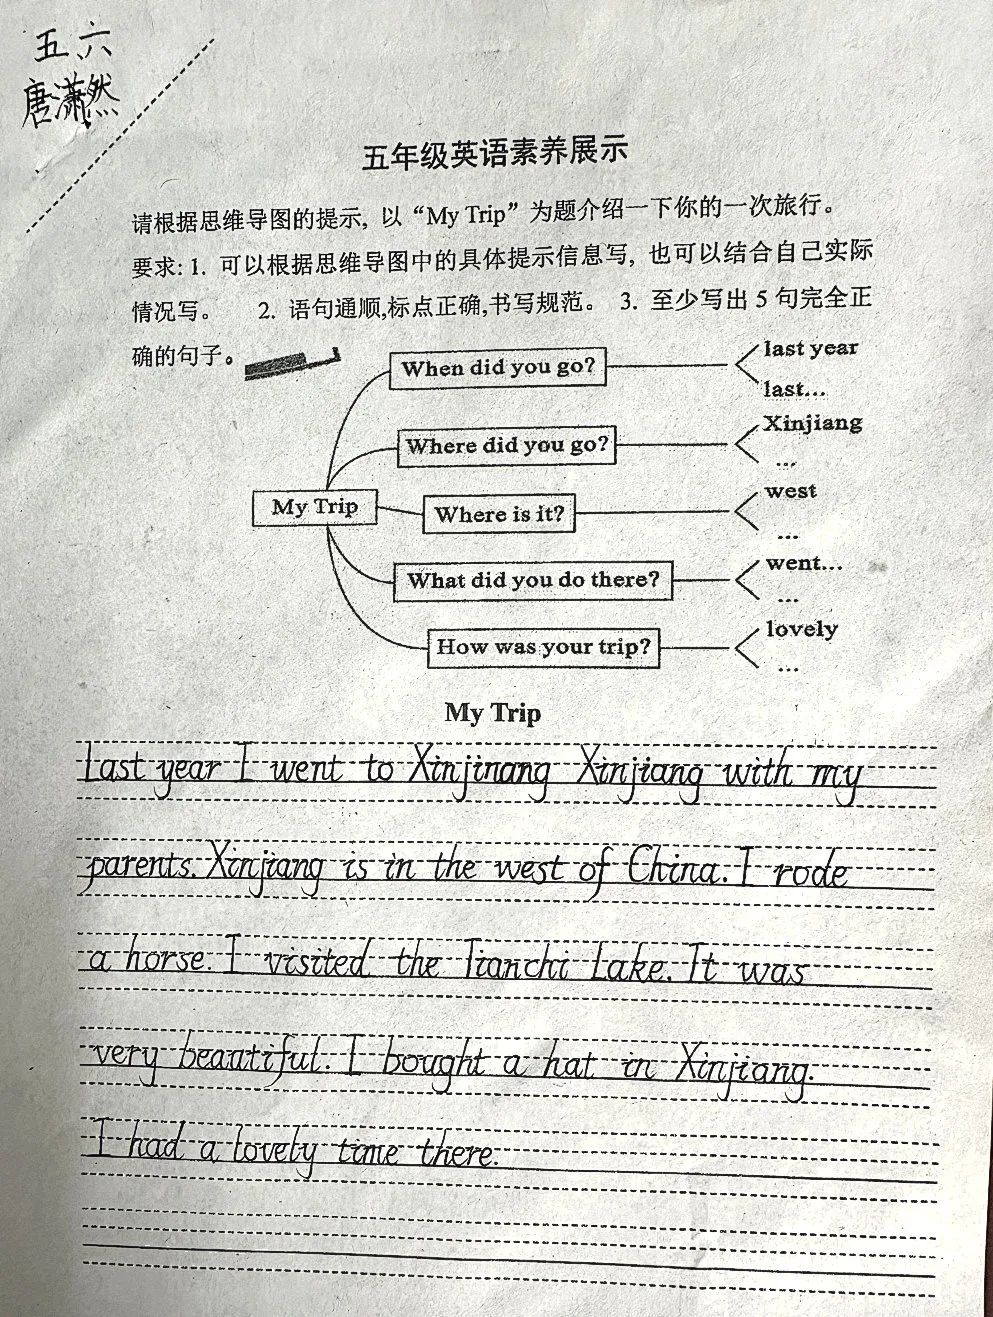 五、六
唐潇然
五年级英语素养展示
请根据思维导图的提示, 以“My Trip”为题介绍一下你的一次旅行。
要求: 1. 可以根据思维导图中的具体提示信息写, 也可以结合自己实际
情况写。 2. 语句通顺,标点正确,书写规范。 3. 至少写出 5 句完全正
确的句子。
When did you go?
last year
last...
Where did you go?
Xinjiang
...
My Trip
Where is it?
west
...
What did you do there?
went...
...
How was your trip?
lovely
...
My Trip
Last year I went to Xinjinang Xinjiang with my
parents. Xinjiang is in the west of China. I rode
a horse. I visited the Tianchi Lake. It was
very beautiful. I bought a hat in Xinjiang.
I had a lovely time there.